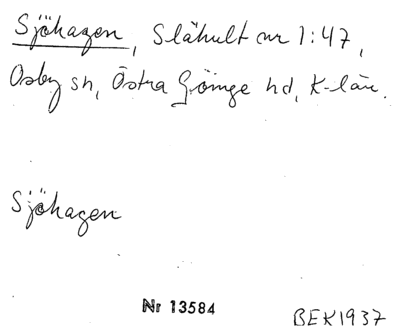 Sjöhagen, Slähult nr 1:47,
Osby sn, Östra Göinge hd, K-län.
Sjöhagen
Nr 13584
BEK1937